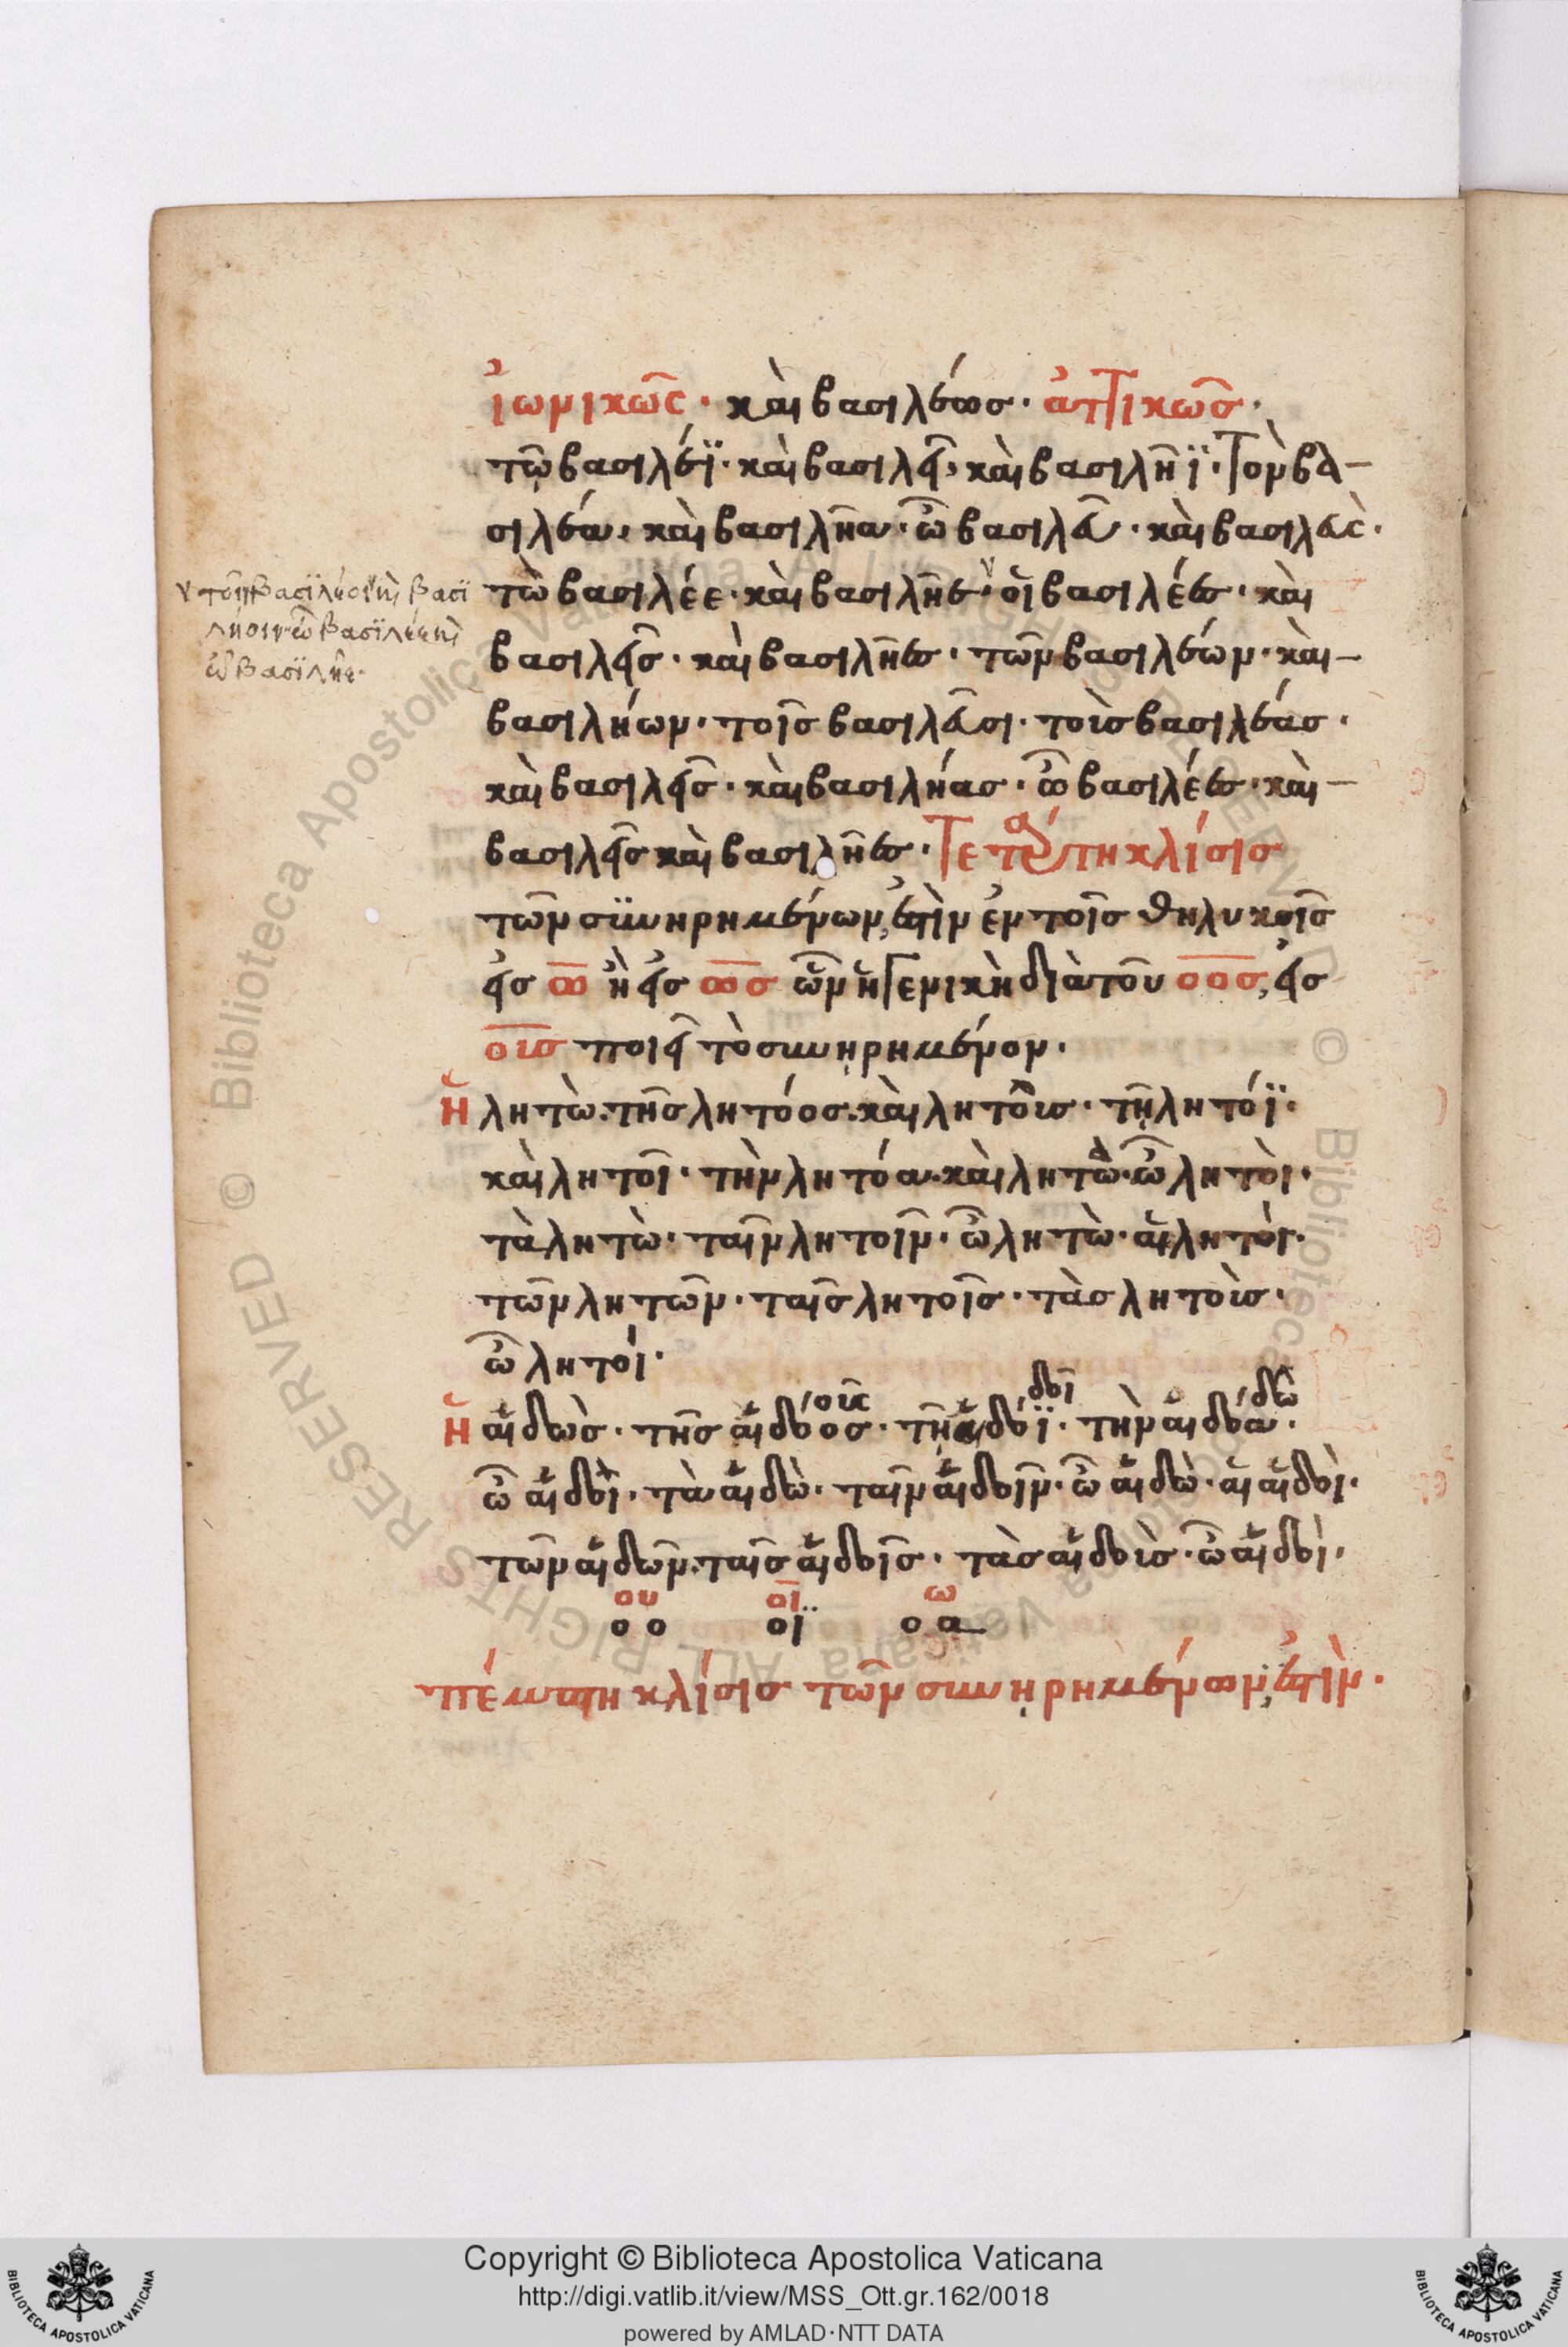 ἰωνικῶς· καὶ βασιλέως· ἀττικῶς·
τῷ βασιλέϊ· καὶ βασιλεῖ, καὶ βασιλῆϊ· Τὸν βα–
σιλέα, καὶ βασιλῆα· ὦ βασιλεῦ· καὶ βασιλεὺς·
τὼ βασιλέε· καὶ βασιλῆε· οἱ βασιλέες· καὶ
βασιλεῖς· καὶ βασιλῆες· τῶν βασιλέων· καὶ–
βασιλήων· τοῖς βασιλεῦσι· τοὺς βασιλέας·
καὶ βασιλεῖς· καὶ βασιλήας· ὦ βασιλέες· καὶ–
βασιλεῖς καὶ βασιλῆες· Τετάρτη κλίσις
τῶν συνηρημένων, ἐστὶν ἐν τοῖς θηλυκοῖς
εἰς ω ἢ εἰς ως ὧν ἡ Γενικὴ διὰ τοῦ οος, εἰς
ους ποιεῖ τὸ συνῃρημένον·
ἡ λητὼ· τῆς λητόος· καὶ λητοῦς· τῇ λητόϊ·
καὶ λητοῖ· τὴν λητόα· καὶ λητὼ· ὦ λητοὶ·
τὰ λητὼ· ταῖν λητοῖν· ὦ λητὼ· αἱ λητοί·
τῶν λητῶν· ταῖς λητοῖς· τὰς λητοὺς·
ὦ λητοί·
οῦς δοῖ δῶ
ἡ αἰδὼς· τῆς αἰδόος· τῇ αἰδόϊ· τὴν αἰδόα·
ὦ αἰδοῖ· τὰ αἰδὼ· ταῖν αἰδοῖν· ὦ αἰδὼ· αἱ αἰδοὶ·
τῶν αἰδῶν· ταῖς αἰδοῖς· τὰς αἰδοὺς· ὦ αἰδοὶ·
ου οι ω
οο οϊ οα
πέμπτη κλίσις τῶν συνῃρημένων, ἐστὶν·
τοῖς βασιλεῦσι καὶ βασι
λήοιν ὦ βασιλέε καὶ
ὦ βασιλῆε·
Copyright © Biblioteca Apostolica Vaticana
http://digi.vatlib.it/view/MSS_Ott.gr.162/0018
powered by AMLAD·NTT DATA